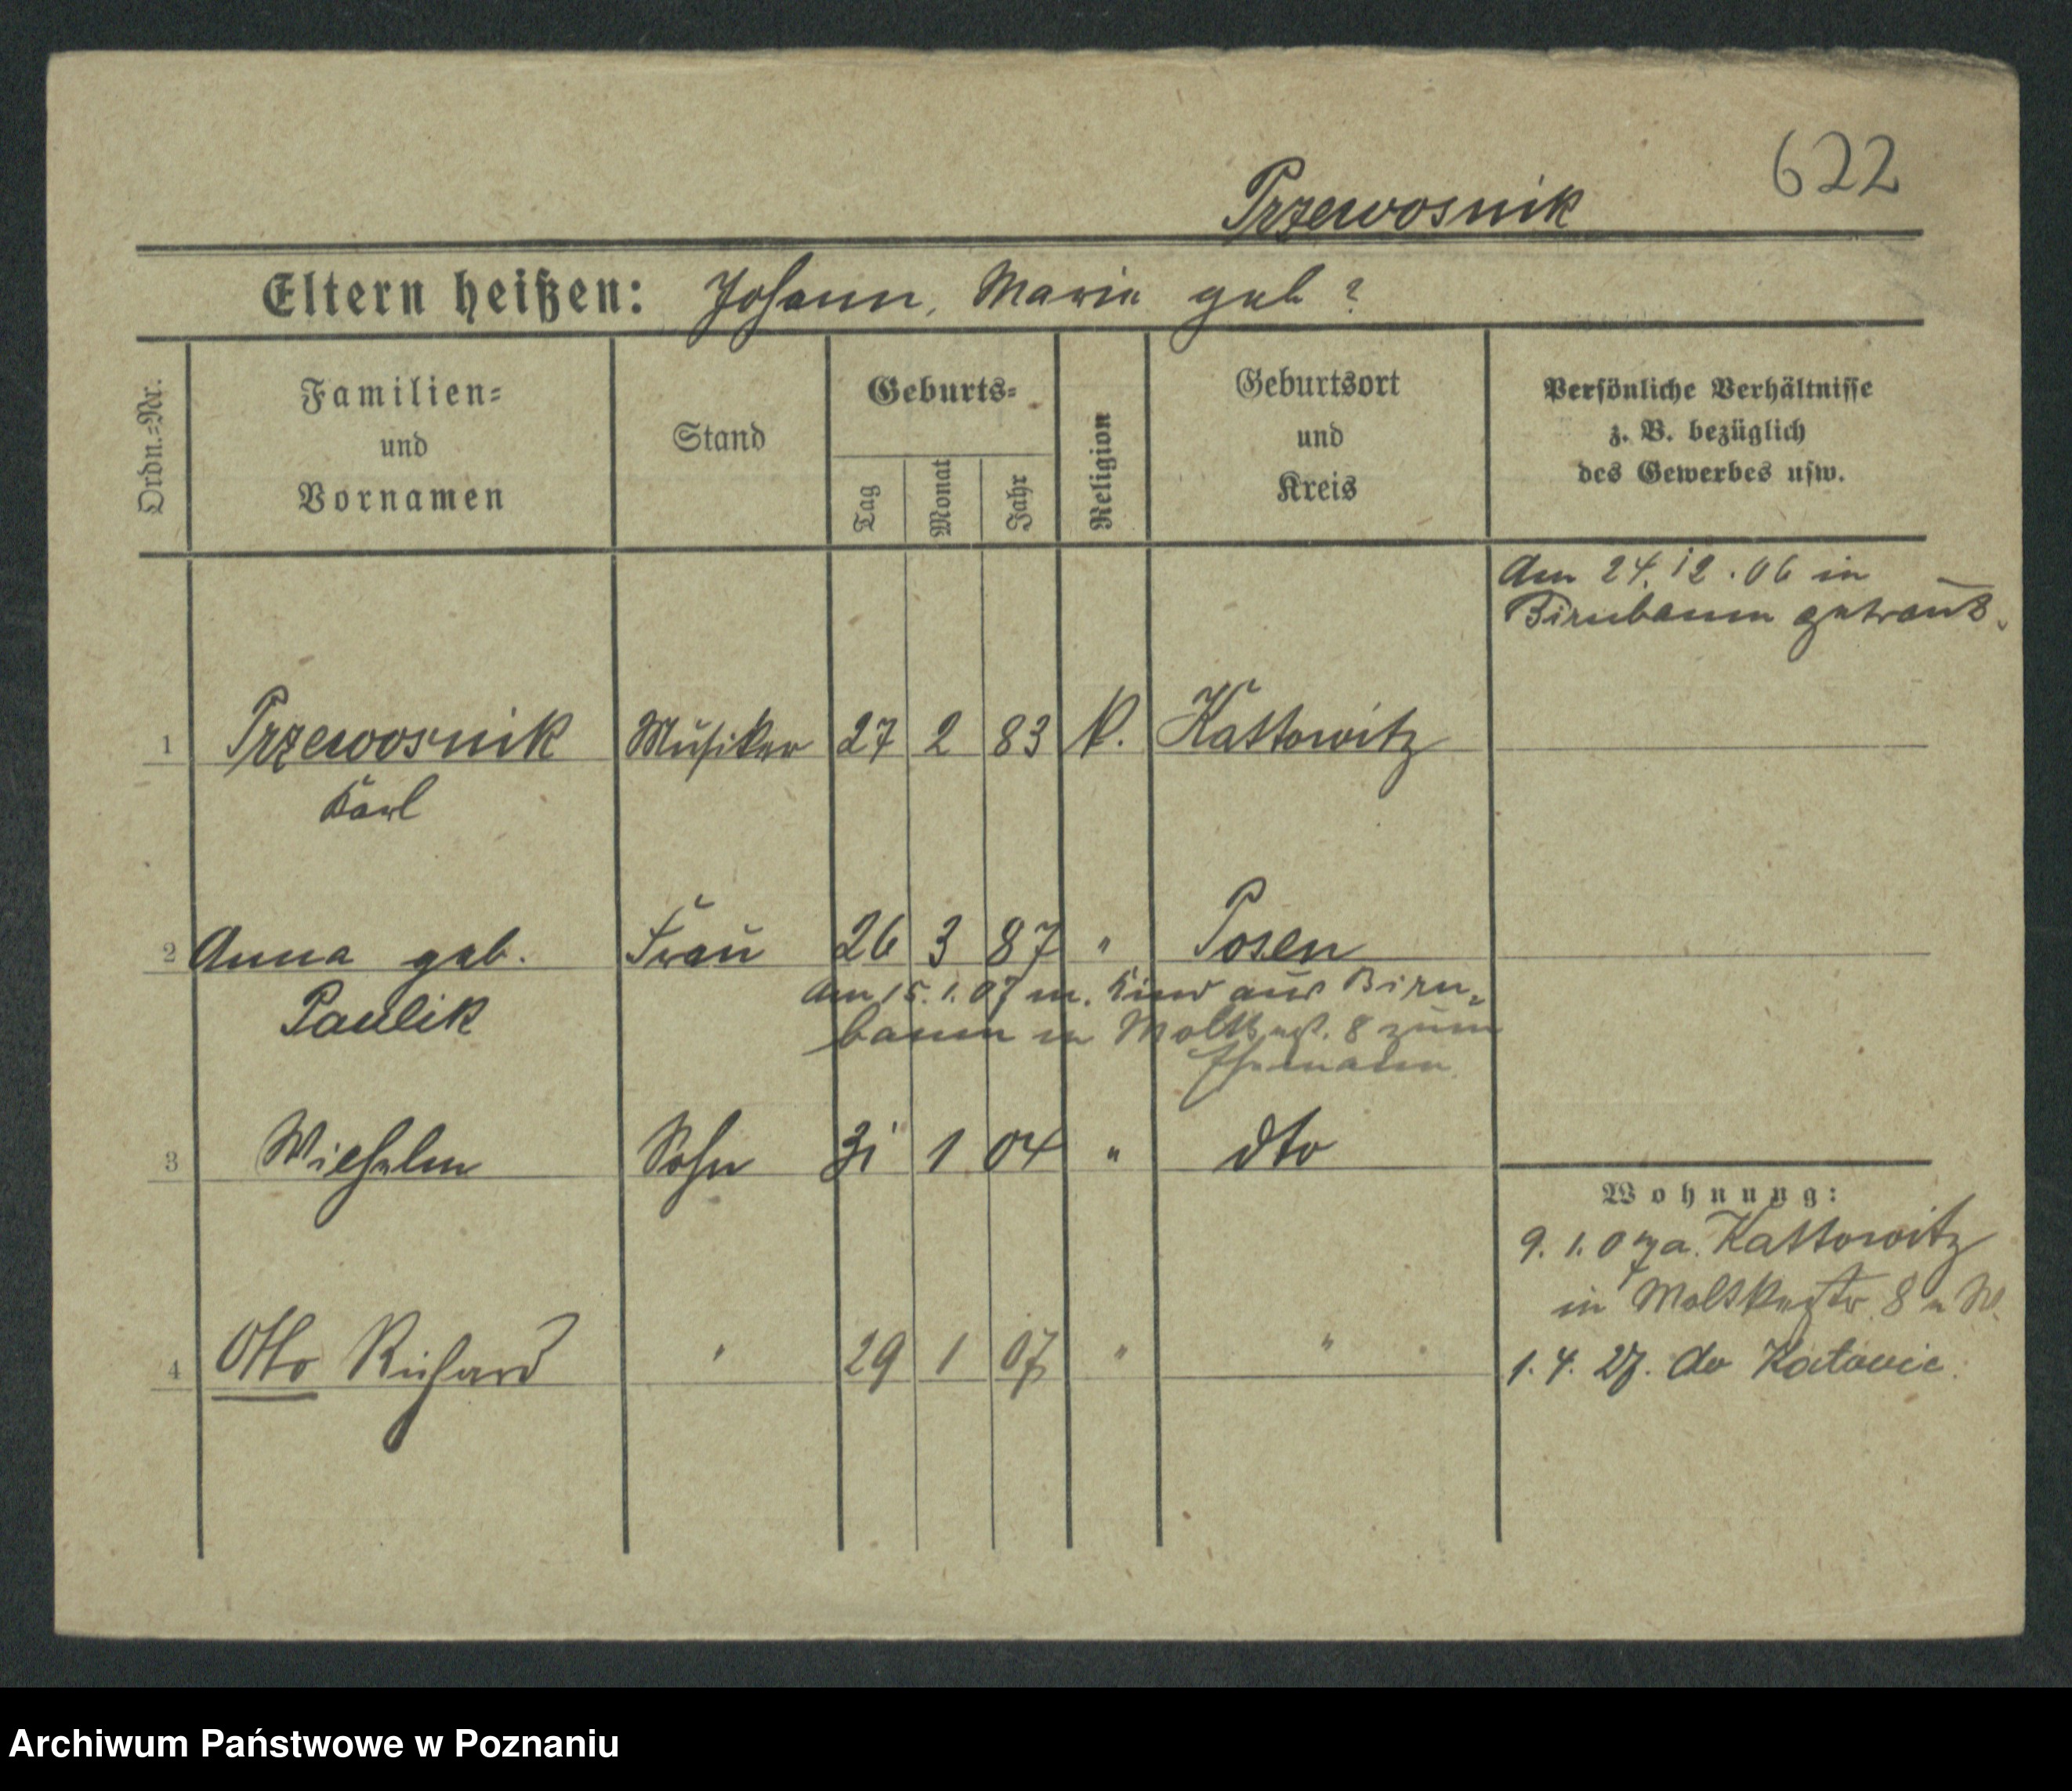 622
Przewosnik
Eltern heißen: Johann, Maria geb ?
Ordn.=Nr.
Familien=
und
Vornamen
Stand
Geburts=
Tag
Monat
Jahr
Religion
Geburtsort
und
Kreis
Persönliche Verhältnisse
z. B. bezüglich
des Gewerbes usw.
Am 24.12.06 in
Birnbaum getraut.
1 Przewosnik Musiker 27 2 83 K. Kattowitz
Karl
2 Anna geb. Frau 26 3 87 " Posen
Paulik
Am 15.1.07 m. Kind aus Birn-
baum in Moltkestr. 8 zum
Ehemann.
3 Wilhelm Sohn 31 1 04 " dto
Wohnung:
9.1.07 a. Kattowitz
in Moltkestr. 8
4 Otto Richard " 29 1 07 " "
1.4.27. do Katowic.
Archiwum Państwowe w Poznaniu